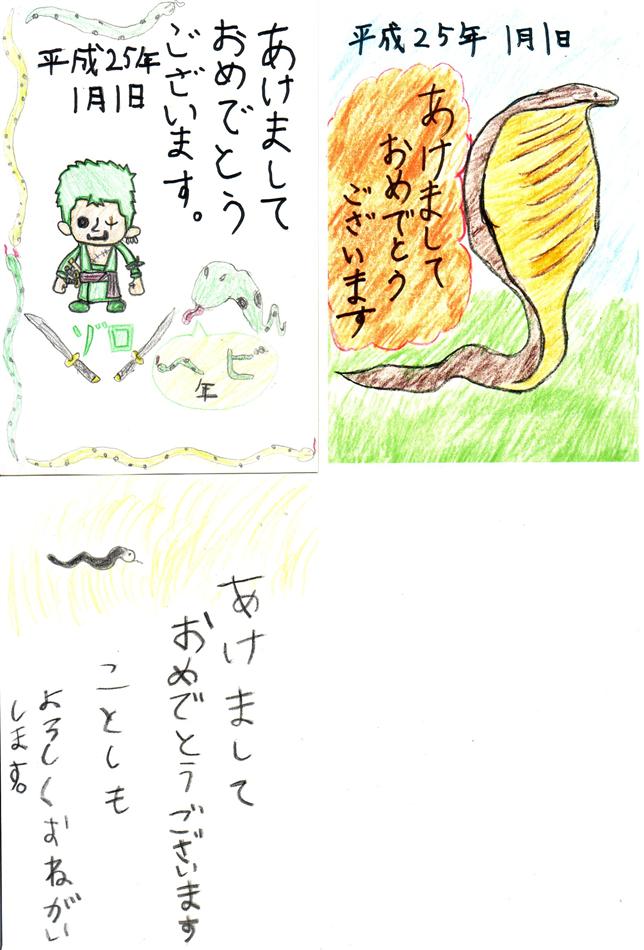 あけまして
おめでとう
ございます。
平成25年
1月1日
ゾロ
ヘビ
年
平成25年 1月1日
あけまして
おめでとう
ございます
あけまして
おめでとうございます
ことしも
よろしくおねがい
します。